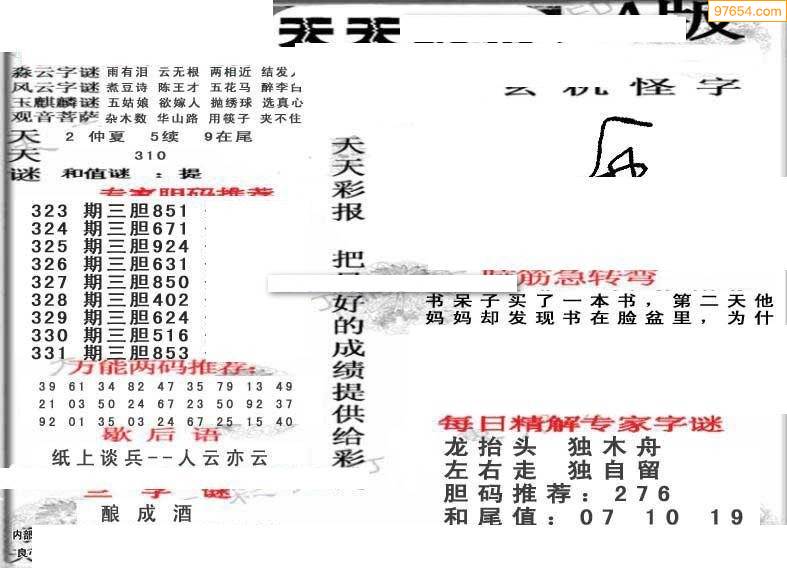 97654.com
天天
版
森云字谜 雨有泪 云无根 两相近 结发人
风云字谜 煮豆诗 陈王才 五花马 醉李白
玉麒麟谜 五姑娘 欲嫁人 抛绣球 选真心
观音菩萨 杂木数 华山路 用筷子 夹不住
天 2 仲夏 5续 9在尾
天 310
谜 和值谜 : 提
专家胆码推荐
323 期三胆851
324 期三胆671
325 期三胆924
326 期三胆631
327 期三胆850
328 期三胆402
329 期三胆624
330 期三胆516
331 期三胆853
万能两码推荐:
39 61 34 82 47 35 79 13 49
21 03 50 24 67 23 50 92 37
92 01 35 03 24 67 25 15 40
歇后语
纸上谈兵--人云亦云
三字谜
酿成酒
内部
天天彩报 把 好的成绩提供给彩
玄机怪字
脑筋急转弯
书呆子买了一本书，第二天他
妈妈却发现书在脸盆里，为什
每日精解专家字谜
龙抬头 独木舟
左右走 独自留
胆码推荐: 276
和尾值: 07 10 19